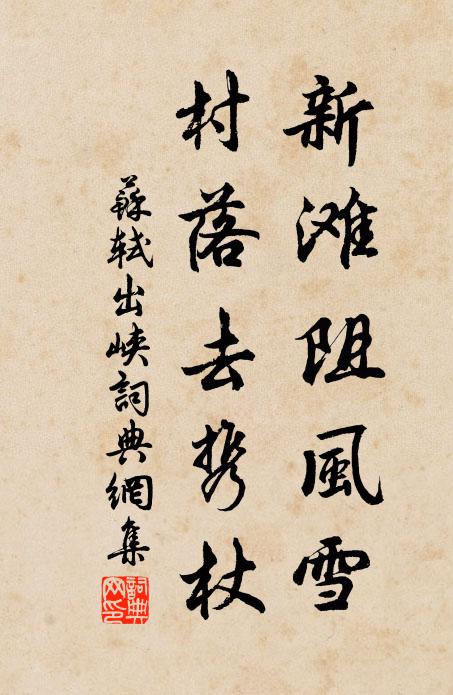 新滩阻風雪
村落去携杖
蘇軾出峽詞典網集
詞典网印